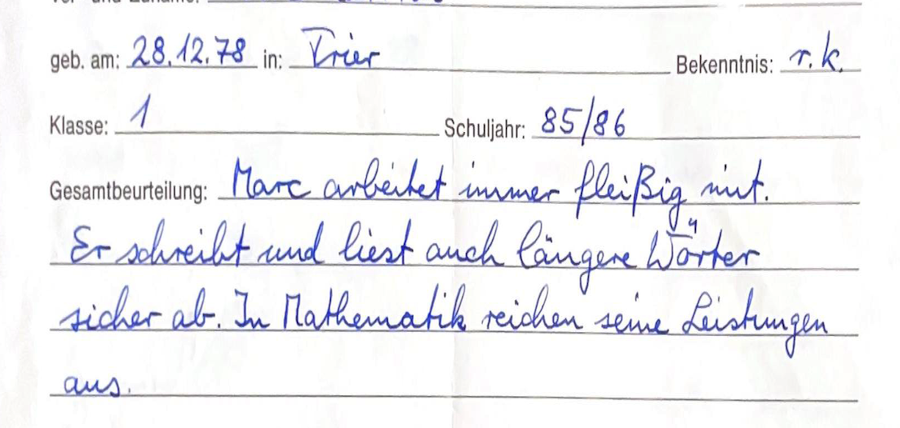 geb. am: 28.12.78 in: Trier Bekenntnis: r. k.
Klasse: 1 Schuljahr: 85/86
Gesamtbeurteilung: Marc arbeitet immer fleißig mit.
Er schreibt und liest auch längere Wörter
sicher ab. In Mathematik reichen seine Leistungen
aus.